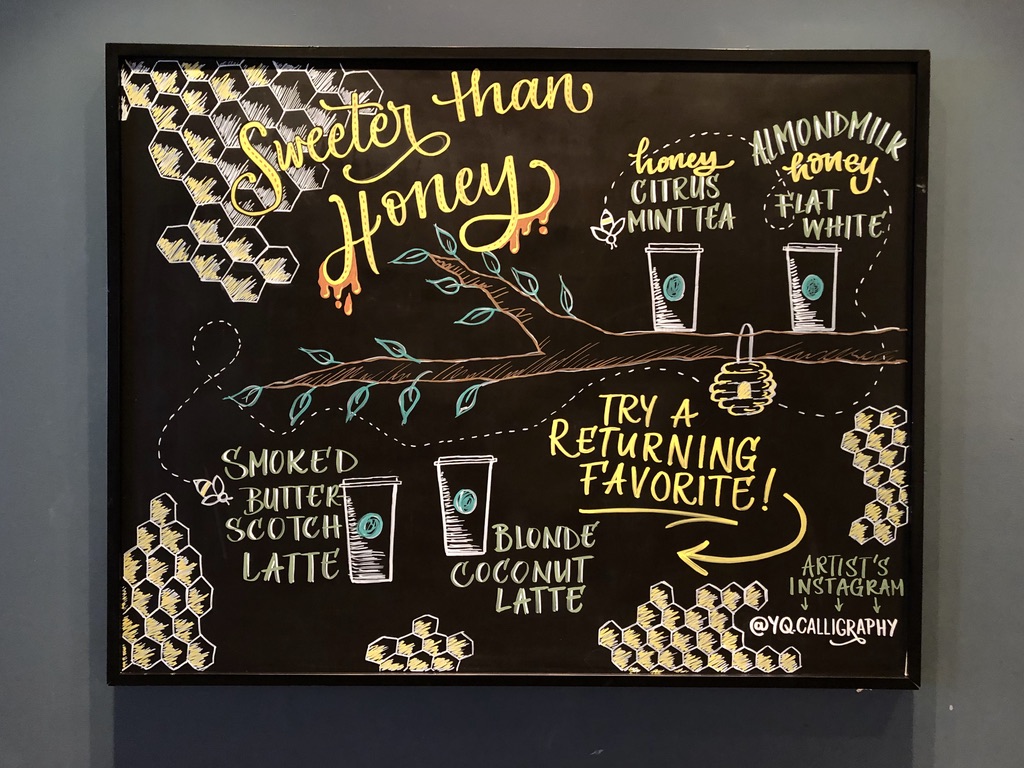 Sweeter than
Honey
honey
CITRUS
MINT TEA
ALMONDMILK
honey
FLAT
WHITE
TRY A
RETURNING
FAVORITE!
SMOKED
BUTTER
SCOTCH
LATTE
BLONDE
COCONUT
LATTE
ARTIST'S
INSTAGRAM
@YQ.CALLIGRAPHY